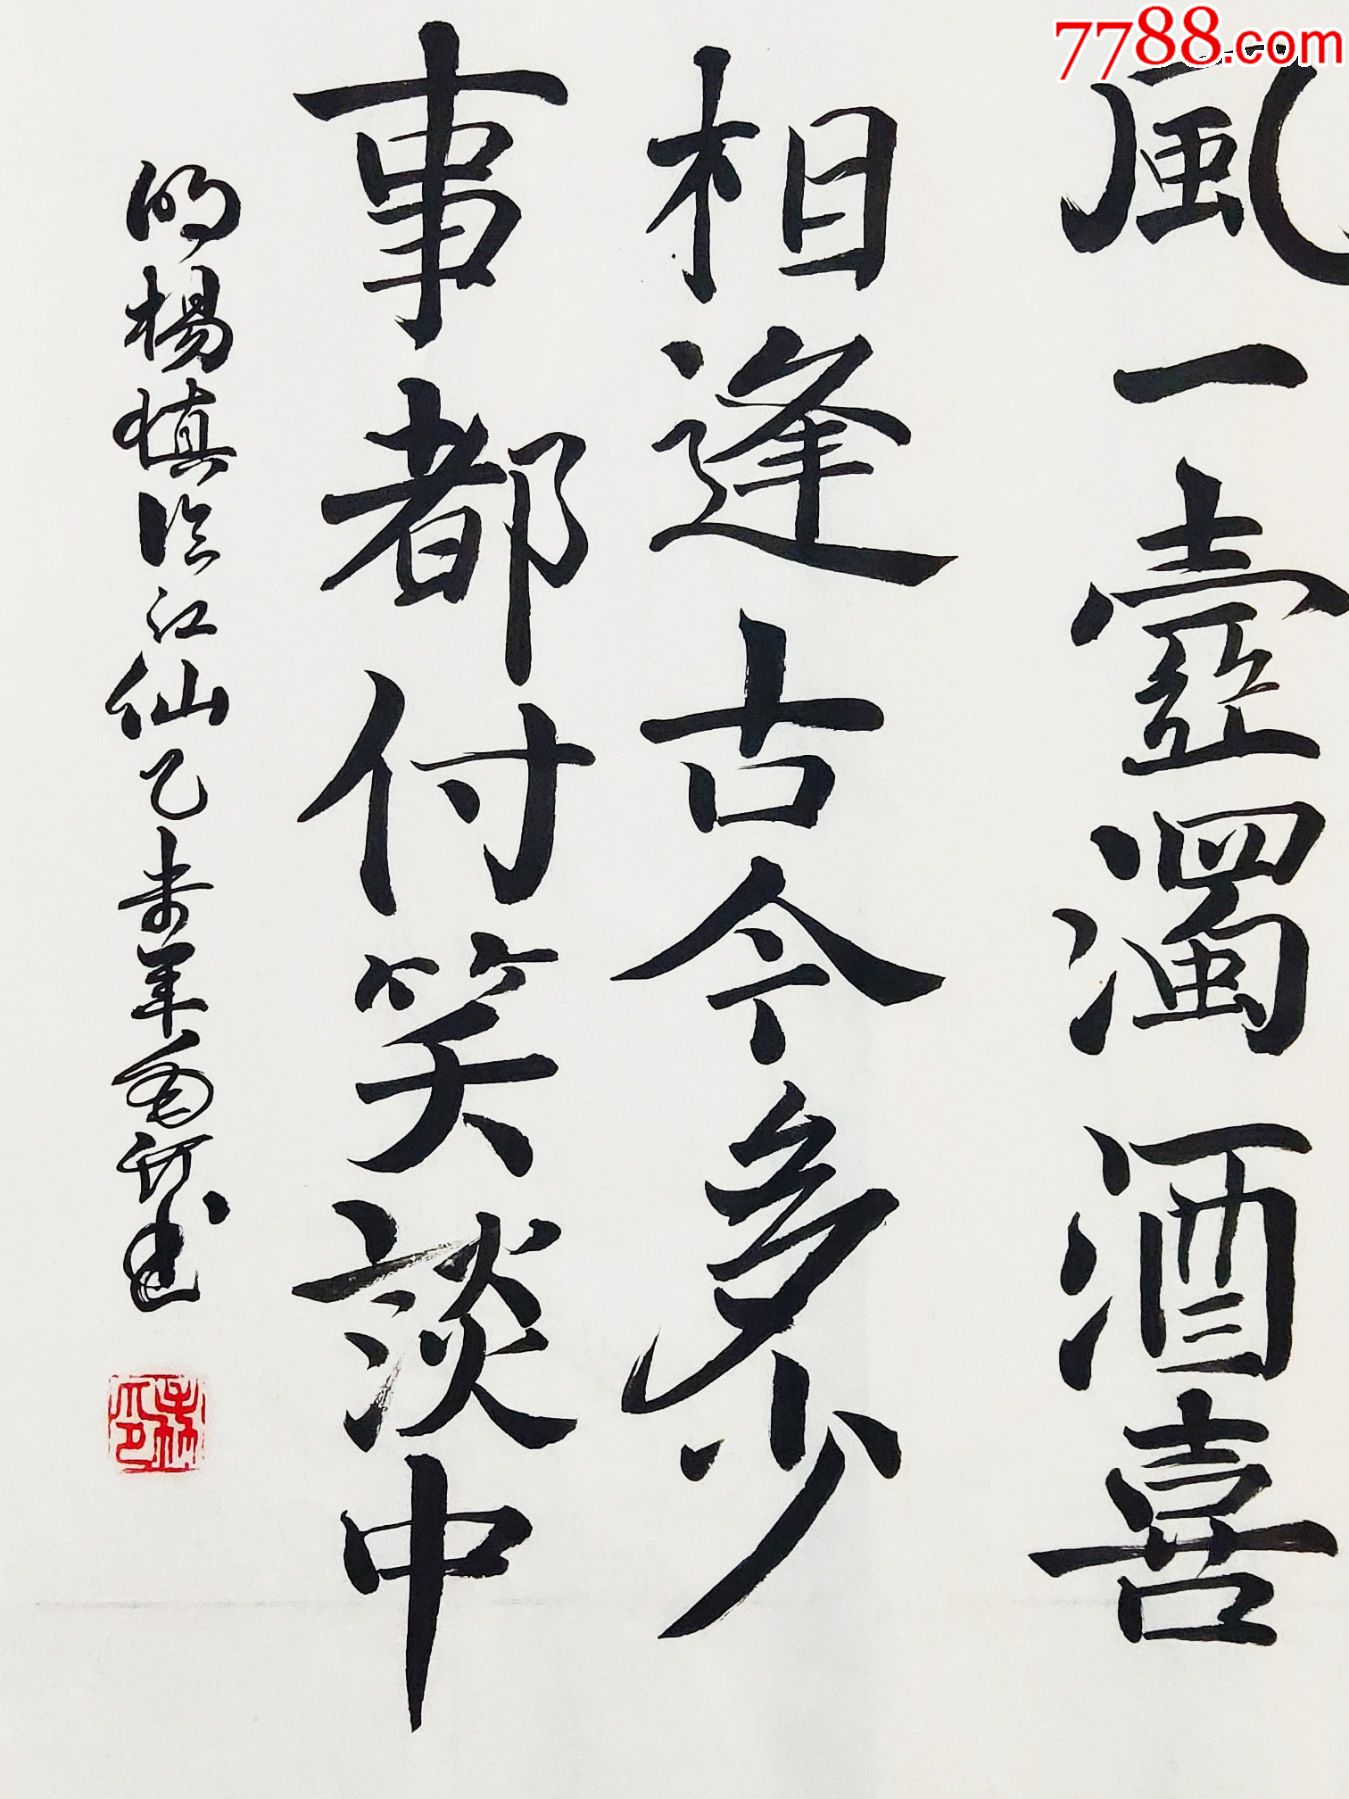 7788.com
風一壺濁酒喜
相逢古今多少
事都付笑談中
明楊慎临江仙乙未年